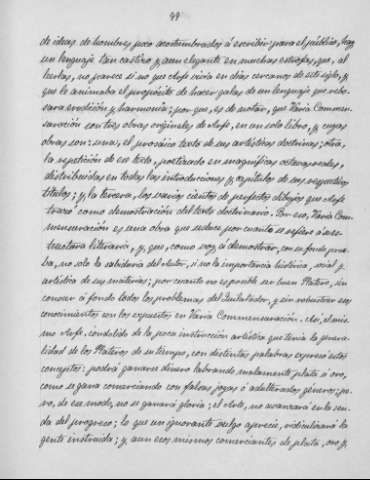 44
de ideas de hombres poco acostumbrados á escribir para el público, hay
un lenguaje tan castizo y aun elegante en muchas estrofas, que, al
leerlas, no parece si no que Arfe vivia en dias cercanos de este siglo, y
que le animaba el propósito de hacer galas de un lenguaje que rebo-
sara erudición y harmonía; por que, es de notar, que Varia Commen-
suración son tres obras originales de Arfe, en un solo libro, y cuyas
obras son: una, el prosáico texto de sus artísticas doctrinas; otra,
la repetición de ese texto, poetizado en magníficas octavas reales,
distribuidas en todas las introducciones y capítulos de sus respectivos
títulos; y la tercera, los varios cientos de perfectos dibujos que Arfe
trazó como demostración del texto doctrinario. Por eso, Varia Com-
mensuración es una obra que seduce por cuanto se refiere á su es-
tructura literaria, y, que, como voy á demostrar, con su fondo prue-
ba, no solo la sabiduría del Autor, si no la importancia histórica, social y
artística de sus materias; por cuanto no es posible ser buen Platero, sin
conocer á fondo todos los problemas del Quilatador, y sin robustecer sus
conocimientos con los expuestos en Varia Commensuración. Así, el mis-
mo Arfe, condolido de la poca instrucción artística que tenía la genera-
lidad de los Plateros de su tiempo, con distintas palabras expresó estos
conceptos: podrá ganarse dinero labrando malamente plata ú oro,
como se gana comerciando con falsas joyas ó adulterados géneros; pe-
ro, de ese modo, no se ganará gloria; el Arte, no avanzará en la sen-
da del progreso; lo que un ignorante vulgo aprecie, ridiculizará la
gente instruida; y aun esos mismos comerciantes de plata, oro y